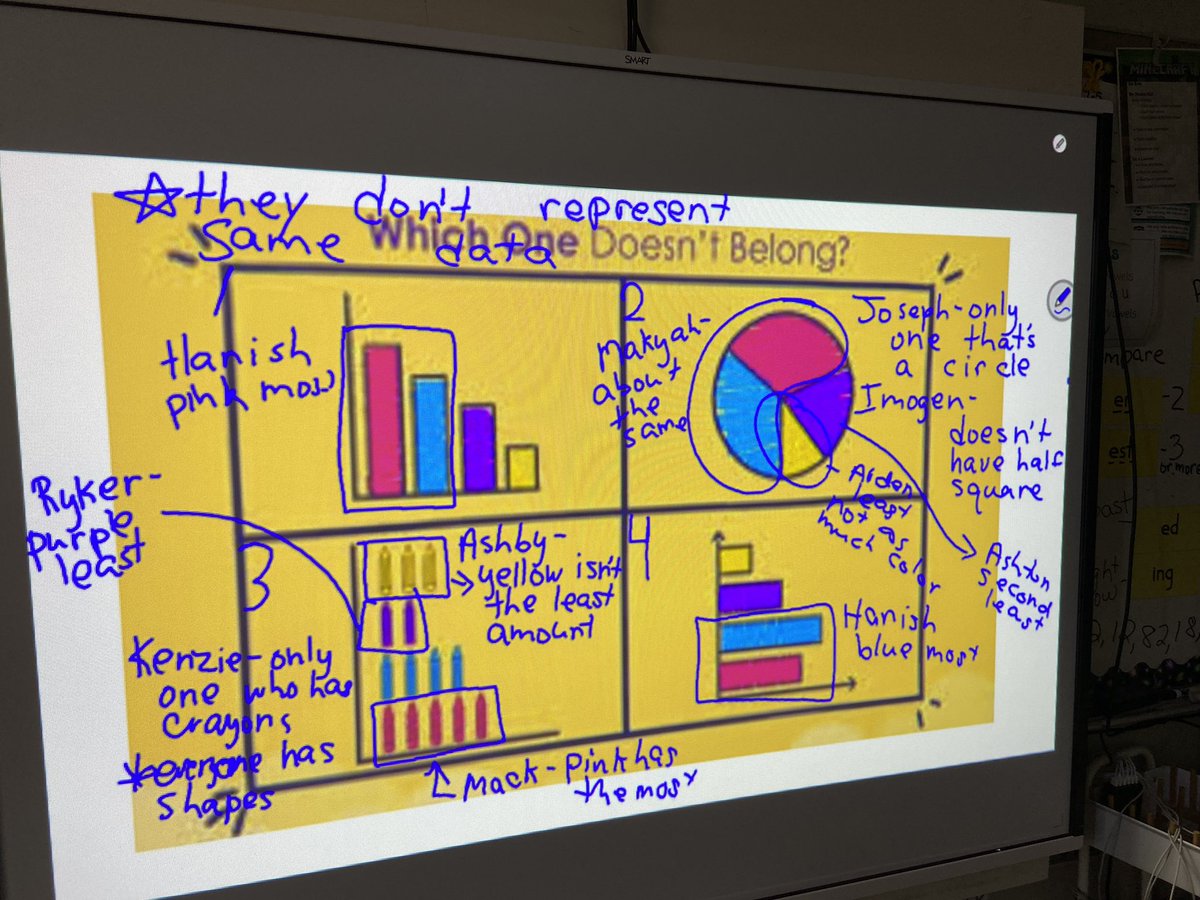 SMART
☆ they don't represent
same data
Which One Doesn't Belong?
1
Hanish
pink most
2
Makyah-
about
the
same
Joseph-only
one that's
a circle
Imogen-
doesn't
have half
square
Arden
least
not as
much color
Ashton
second
least
Ryker-
purple
least
3
Ashby-
yellow isn't
the least
amount
Kenzie-only
one who has
crayons
*everyone has
shapes
Mack-Pink has
the most
4
Hanish
blue most
MINECRAF
mpare
er -2
est -3
or more
ed
ing